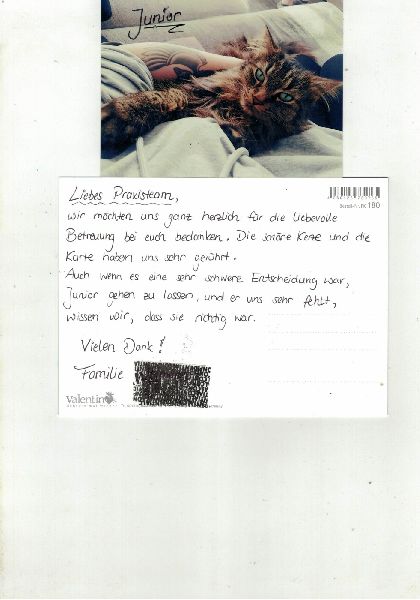 Junior
Liebes Praxisteam,
wir möchten uns ganz herzlich für die liebevolle
Betreuung bei euch bedanken. Die schöne Kerze und die
Karte haben uns sehr gerührt.
Auch wenn es eine sehr schwere Entscheidung war,
Junior gehen zu lassen, und er uns sehr fehlt,
wissen wir, dass sie richtig war.
Vielen Dank!
Familie
Valentin